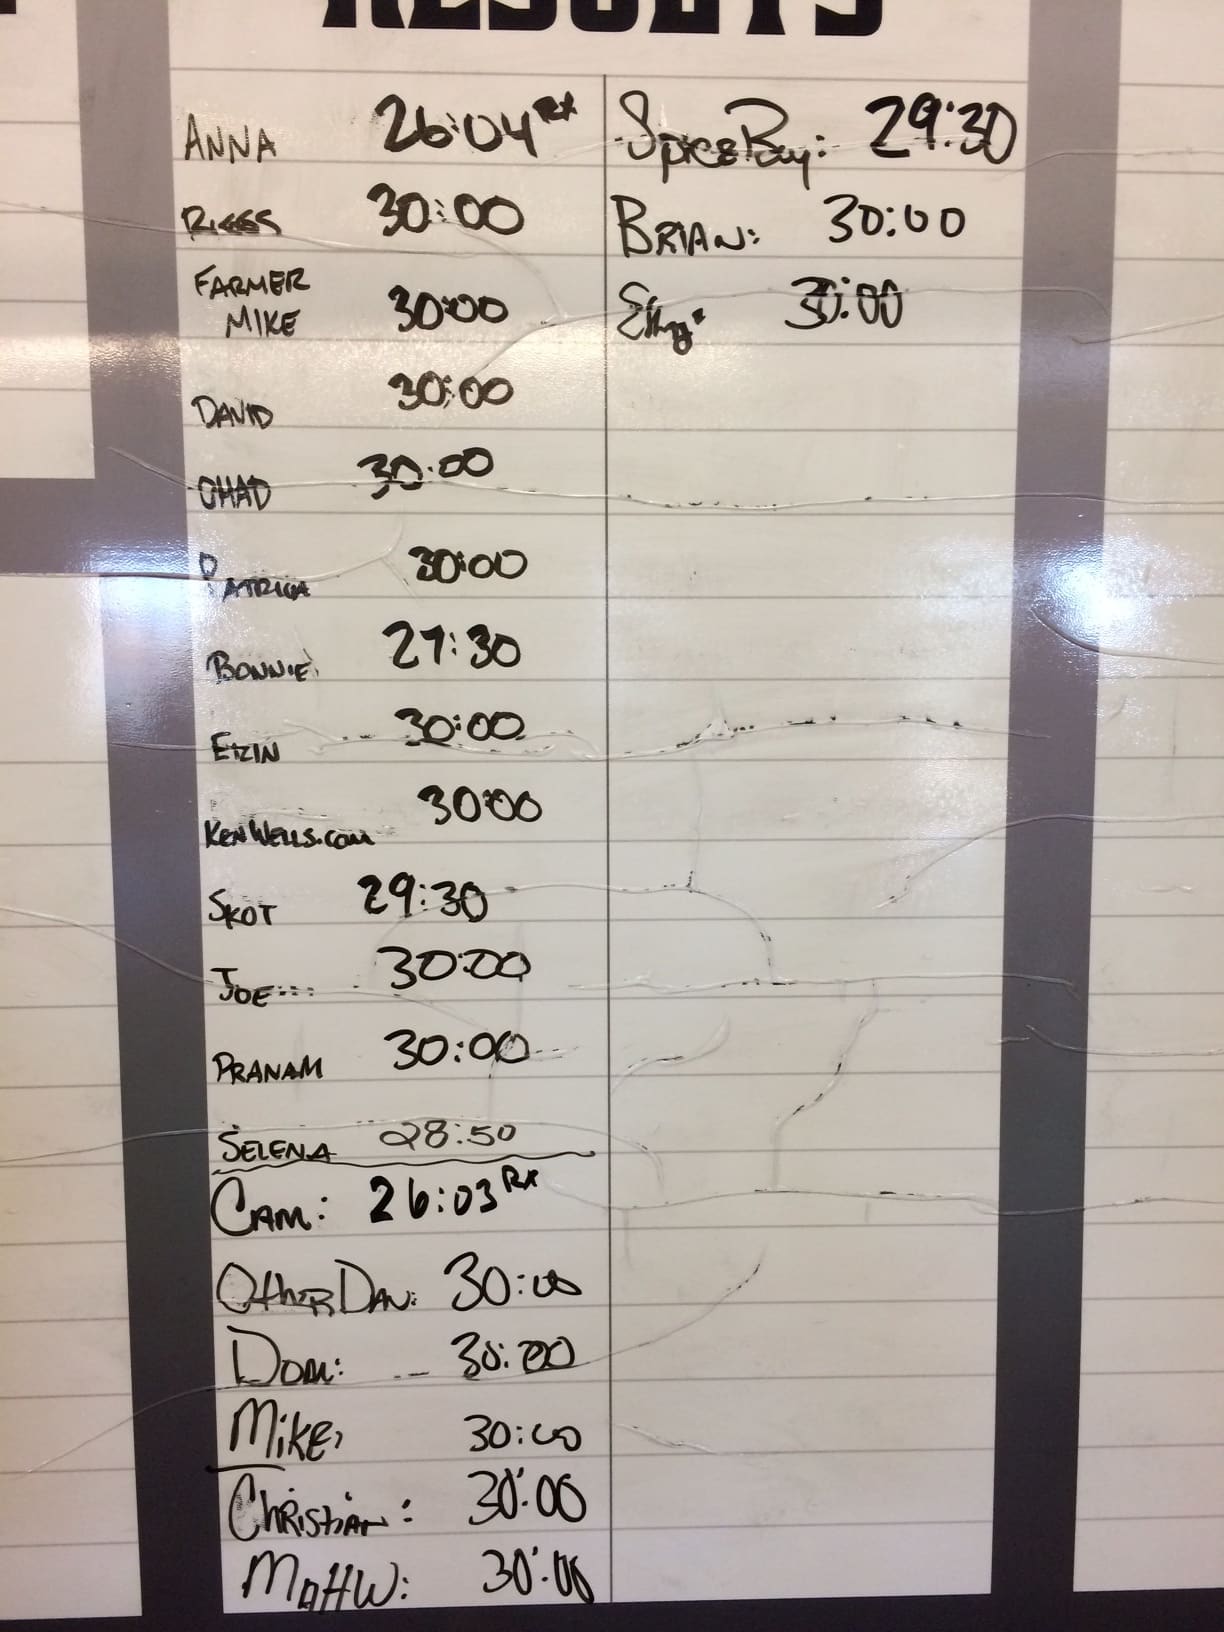 RESULTS
ANNA 26:04 RX
RIGGS 30:00
FARMER
MIKE 30:00
DAVID 30:00
CHAD 30:00
PATRICIA 30:00
BONNIE 27:30
ERIN 30:00
KENWELLS.COM 30:00
SKOT 29:30
JOE... 30:00
PRANAM 30:00
SELENA 28:50
CAM: 26:03 RX
OTHER DAN: 30:00
DOM: 30:00
MIKE: 30:00
CHRISTIAN: 30:00
MATT W: 30:00
Spice Boy: 29:30
BRIAN: 30:00
30:00